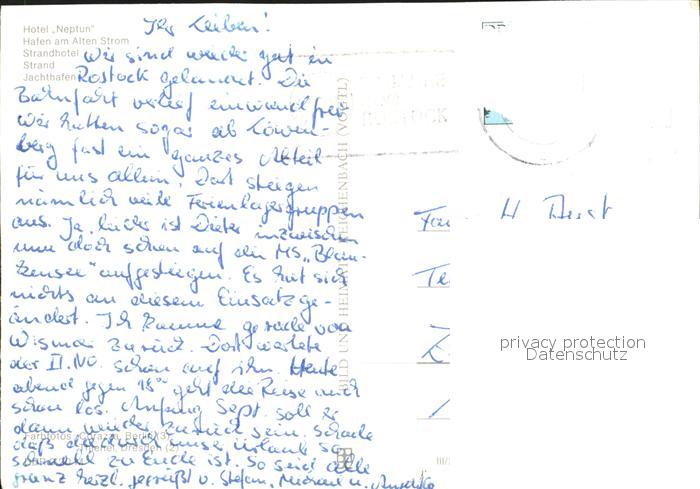 Hotel „Neptun"
Hafen am Alten Strom
Strandhotel
Strand
Jachthafen
Ihr Lieben!
Wir sind wieder gut in
Rostock gelandet. Die
Bahnfahrt verlief einwandfrei
Wir hatten sogar ab Löwen-
berg fast ein ganzes Abteil
für uns allein. Dort steigen
nämlich viele Ferienlagergruppen
aus. Ja, leider ist Dieter inzwischen
nun doch schon auf die MS „Blan-
kensee" aufgestiegen. Es hat sich
nichts an diesem Einsatz ge-
ändert. Ich komme gerade von
Wismar zurück. Dort wartete
der II. NO. schon auf ihn. Heute
abend gegen 18⁰⁰ geht die Reise
schon los. Anfang Sept. soll er
dann wieder zurück sein. Schade
daß dadurch unser Urlaub so
schnell zu Ende ist. So seid alle
ganz herzl. gegrüßt v. Stefan, Michael u.
Farbfotos: Berlin (3)
Dresden (2)
BILD UND HEIMAT REICHENBACH (VOGTL)
ROSTOCK
Fam
H
privacy protection
Datenschutz